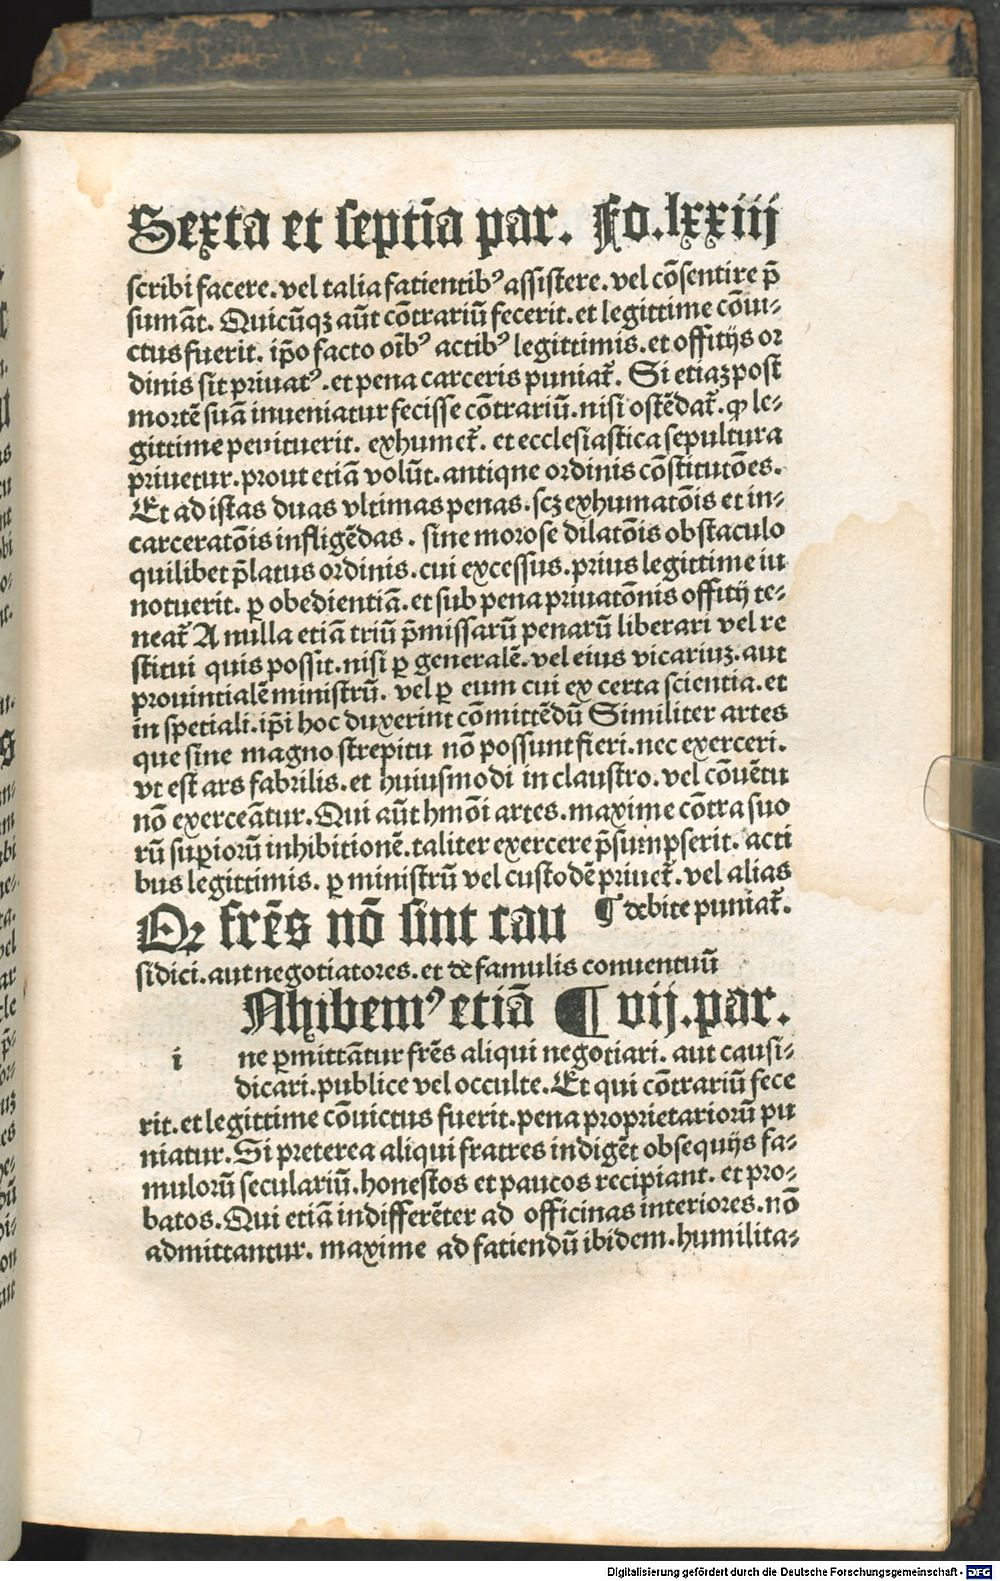 Sexta et septīa par. Fo.lxxiij
scribi facere. vel talia fatientibꝰ assistere. vel cōsentire p̄
sumāt. Quicūqꝫ aūt cōtrariū fecerit. et legittime cōui⸗
ctus fuerit. ip̄o facto oībꝰ actibꝰ legittimis. et offitijs or
dinis sit priuatꝰ. et pena carceris puniat᷑. Si etiaꝫ post
mortē suā inueniatur fecisse cōtrariū. nisi ostēdat᷑. ꝙ le⸗
gittime penituerit. exhumet᷑. et ecclesiastica sepultura
priuetur. prout etiā volūt. antique ordinis cōstitutōes.
Et ad istas duas vltimas penas. scꝫ exhumatōis et in⸗
carceratōis infligēdas. sine morose dilatōis obstaculo
quilibet p̄latus ordinis. cui excessus. prius legittime in
notuerit. ꝑ obedientiā. et sub pena priuatōnis offitij te⸗
neat᷑ A nulla etiā triū p̄missarū penarū liberari vel re
stitui quis possit. nisi ꝑ generalē. vel eius vicariuꝫ. aut
prouintialē ministrū. vel ꝑ eum cui ex certa scientia. et
in spetiali. ip̄i hoc duxerint cōmittēdū Similiter artes
que sine magno strepitu nō possunt fieri. nec exerceri.
vt est ars fabrilis. et huiusmodi in claustro. vel cōuētu
nō exerceātur. Qui aūt hmōi artes. maxime cōtra suo
rū suꝑiorū inhibitionē. taliter exercere p̄sumpserit. acti
bus legittimis. ꝑ ministrū vel custodē priuet᷑. vel alias
¶ debite puniat᷑.
Qꝛ frēs nō sint cau
sidici. aut negotiatores. et de famulis conuentuū
Nhibemꝰ etiā ¶ vij. par.
i ne ꝑmittātur frēs aliqui negotiari. aut causi⸗
dicari. publice vel occulte. Et qui cōtrariū fece
rit. et legittime cōuictus fuerit. pena proprietariorū pu
niatur. Si preterea aliqui fratres indigēt obsequijs fa⸗
mulorū seculariū. honestos et paucos recipiant. et pro⸗
batos. Qui etiā indifferēter ad officinas interiores. nō
admittantur. maxime ad fatiendū ibidem. humilita⸗
Digitalisierung gefördert durch die Deutsche Forschungsgemeinschaft - DFG